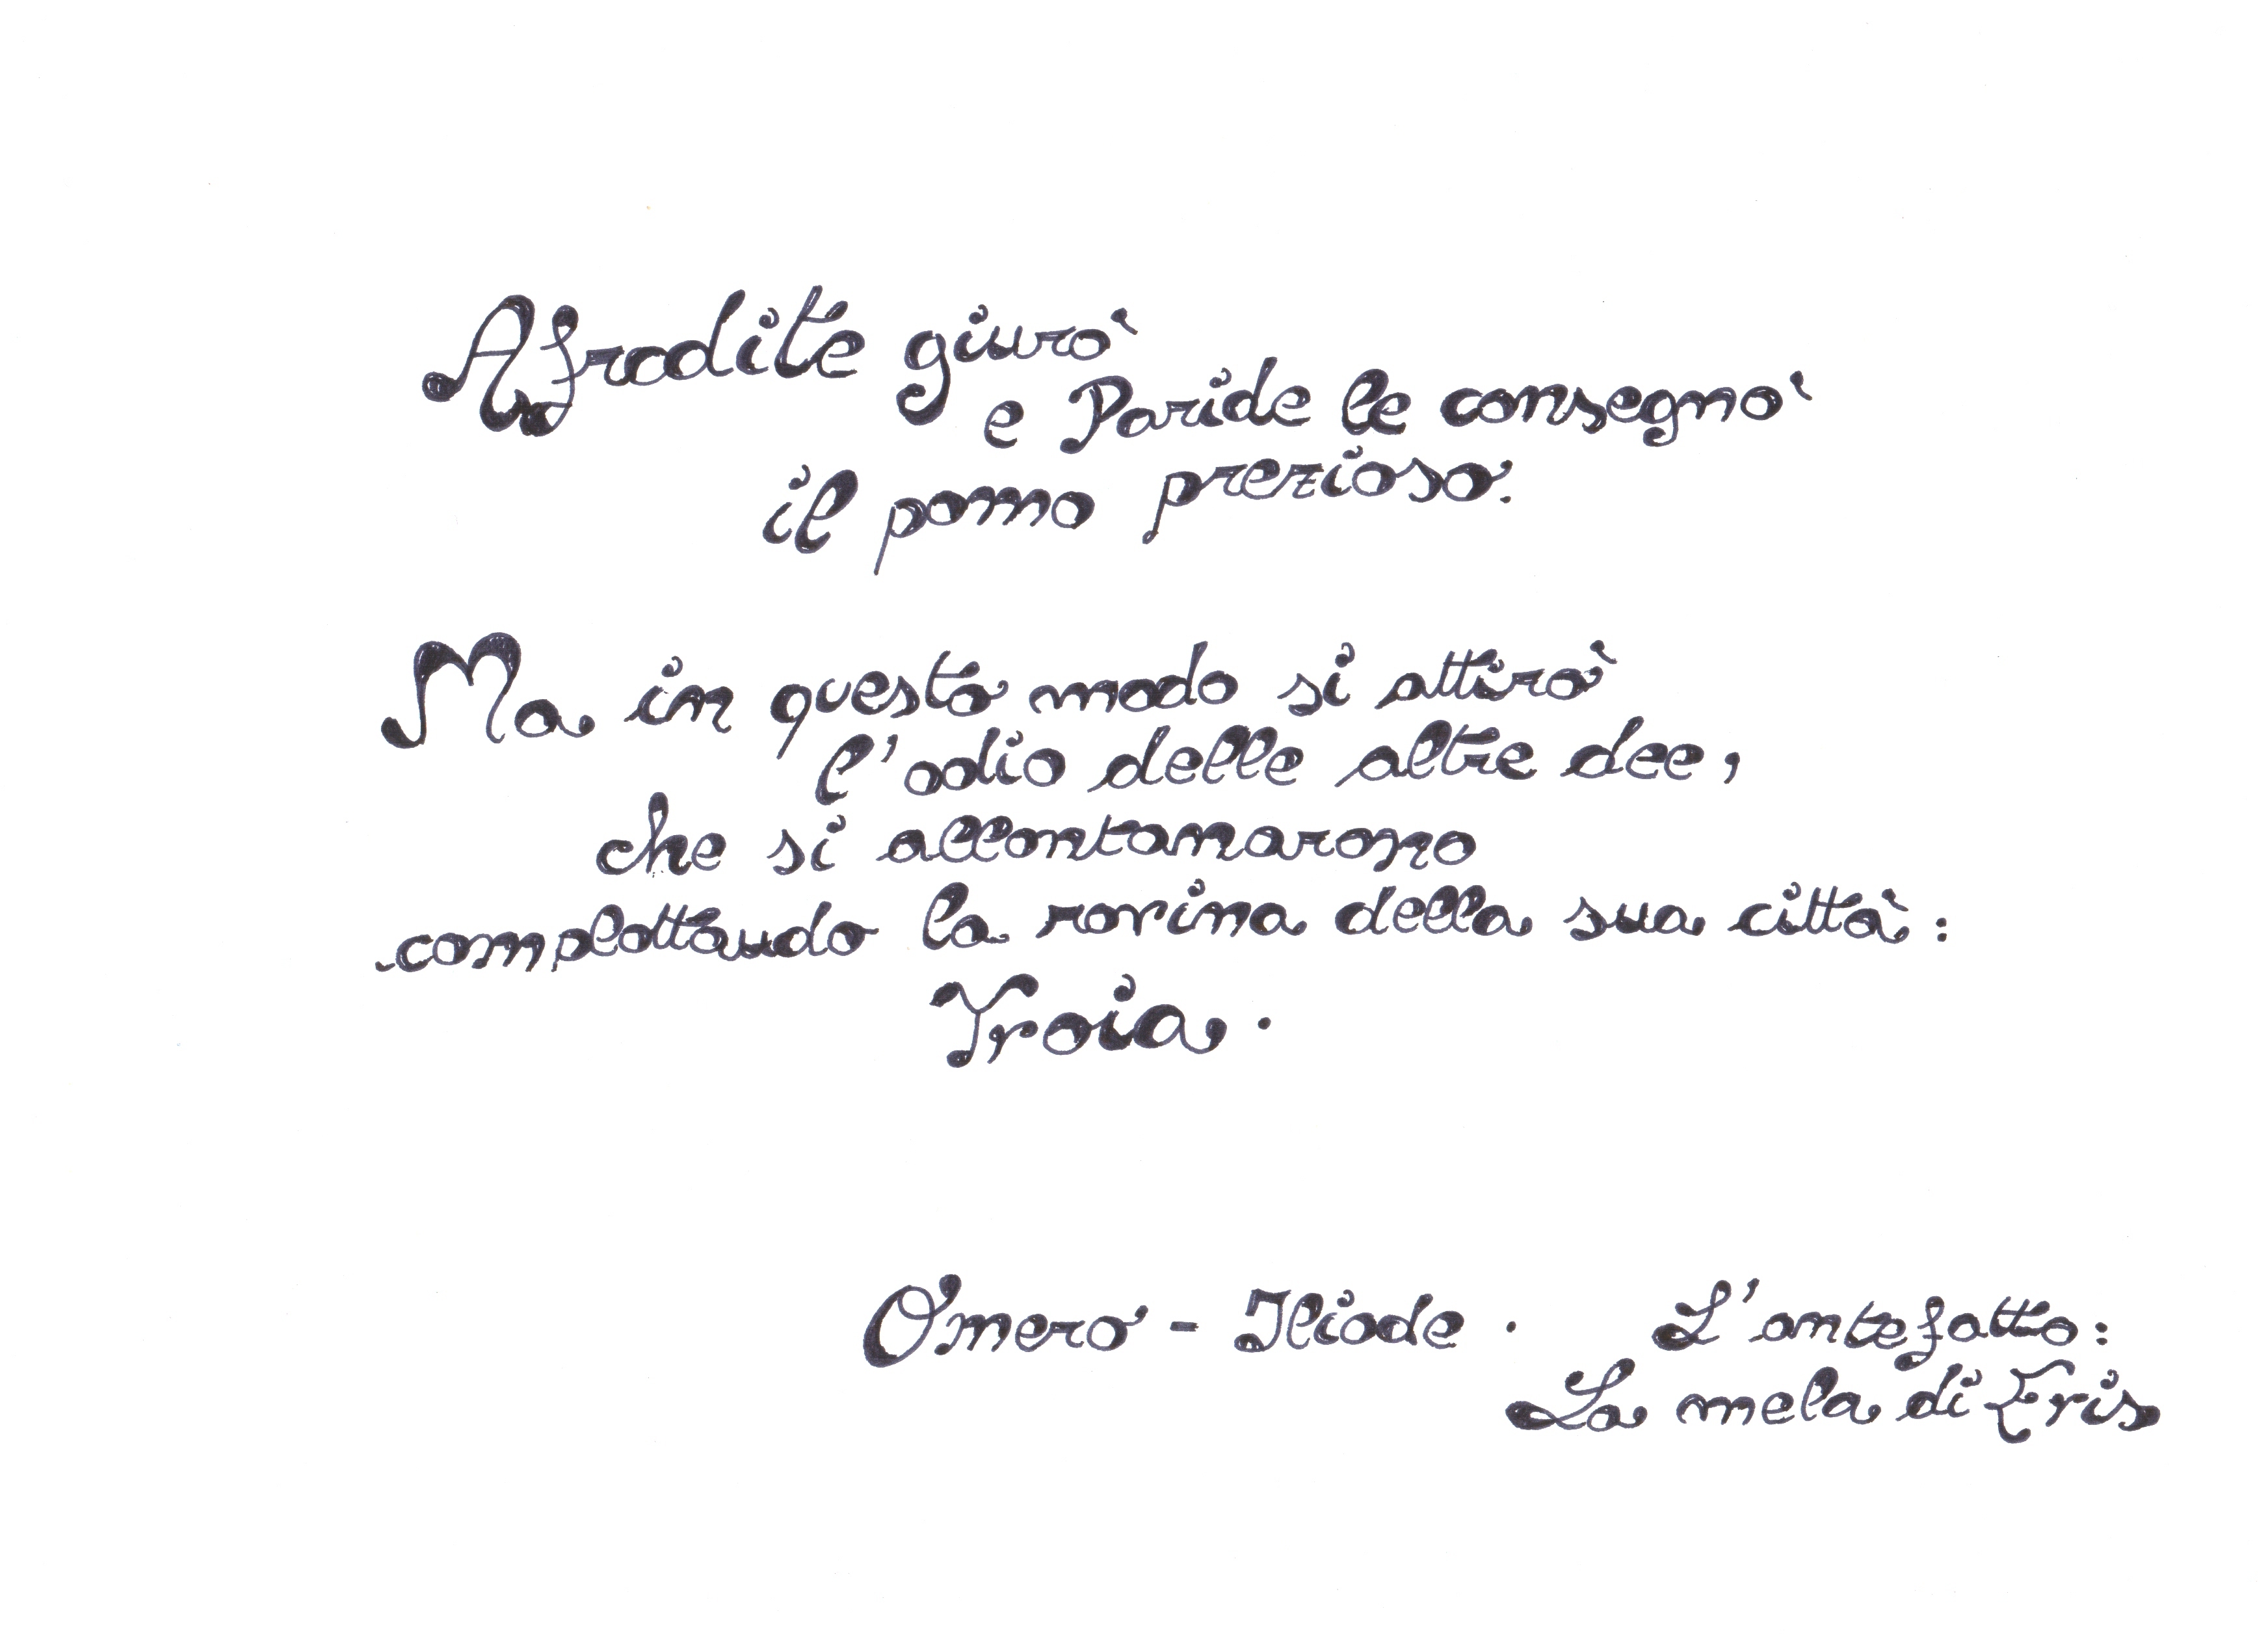 Afrodite giurò
e Paride le consegnò
il pomo prezioso.
Ma in questo modo si attirò
l'odio delle altre dee,
che si allontanarono
complottando la rovina della sua città:
Troia.
Omero - Iliade. L'antefatto:
La mela di Eris